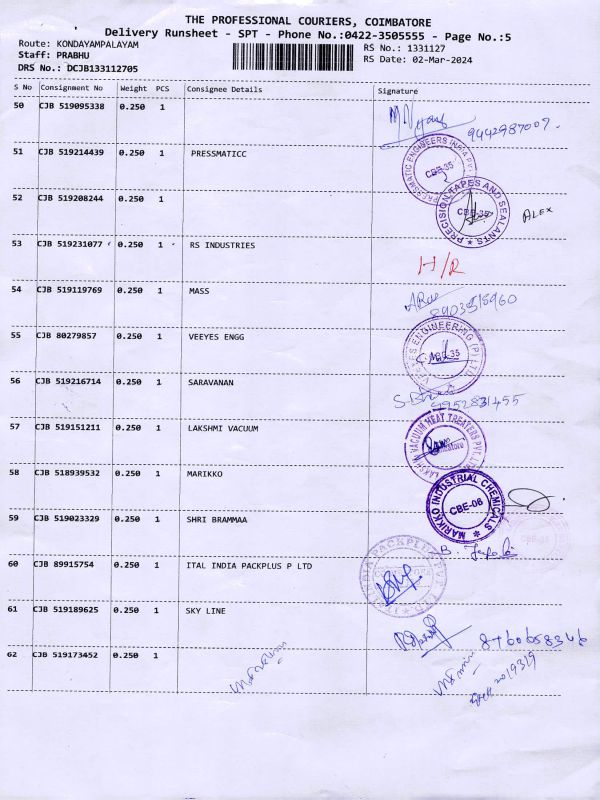 THE PROFESSIONAL COURIERS, COIMBATORE
Delivery Runsheet - SPT - Phone No.:0422-3505555 - Page No.:5
Route: KONDAYAMPALAYAM
RS No.: 1331127
Staff: PRABHU
RS Date: 02-Mar-2024
DRS No.: DCJB133112705
S No Consignment No Weight PCS Consignee Details Signature
50 CJB 519095338 0.250 1
9442987007.
51 CJB 519214439 0.250 1 PRESSMATICC
PRESSMATIC ENGINEERS INDIA PVT CBE-35
52 CJB 519208244 0.250 1
PRECISION TAPES AND SEALANTS * CBE-35 ALEX
53 CJB 519231077 0.250 1 RS INDUSTRIES
H/R
54 CJB 519119769 0.250 1 MASS
8903515960
55 CJB 80279857 0.250 1 VEEYES ENGG
VEEYES ENGINEERING (P) LTD CBE-35
56 CJB 519216714 0.250 1 SARAVANAN
9952831455
57 CJB 519151211 0.250 1 LAKSHMI VACUUM
LAKSHMI VACUUM HEAT TREATERS PVT. LTD Coimbatore
58 CJB 518939532 0.250 1 MARIKKO
MARIKKO INDUSTRIAL CHEMICALS * CBE-06
59 CJB 519023329 0.250 1 SHRI BRAMMAA
B.
60 CJB 89915754 0.250 1 ITAL INDIA PACKPLUS P LTD
61 CJB 519189625 0.250 1 SKY LINE
8760658346
62 CJB 519173452 0.250 1